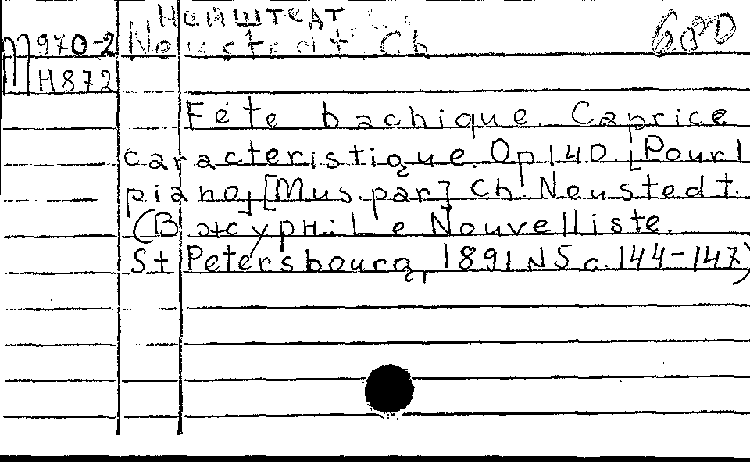 Нейштедт
М 970-2 Neustedt Ch
H872
Fête bachique. Caprice
caracteristique. Op 140. [Pour l
piano, [Mus. par] Ch. Neustedt.
(В журн.: Le Nouvelliste.
St Petersbourg, 1891 N5 c. 144-147)